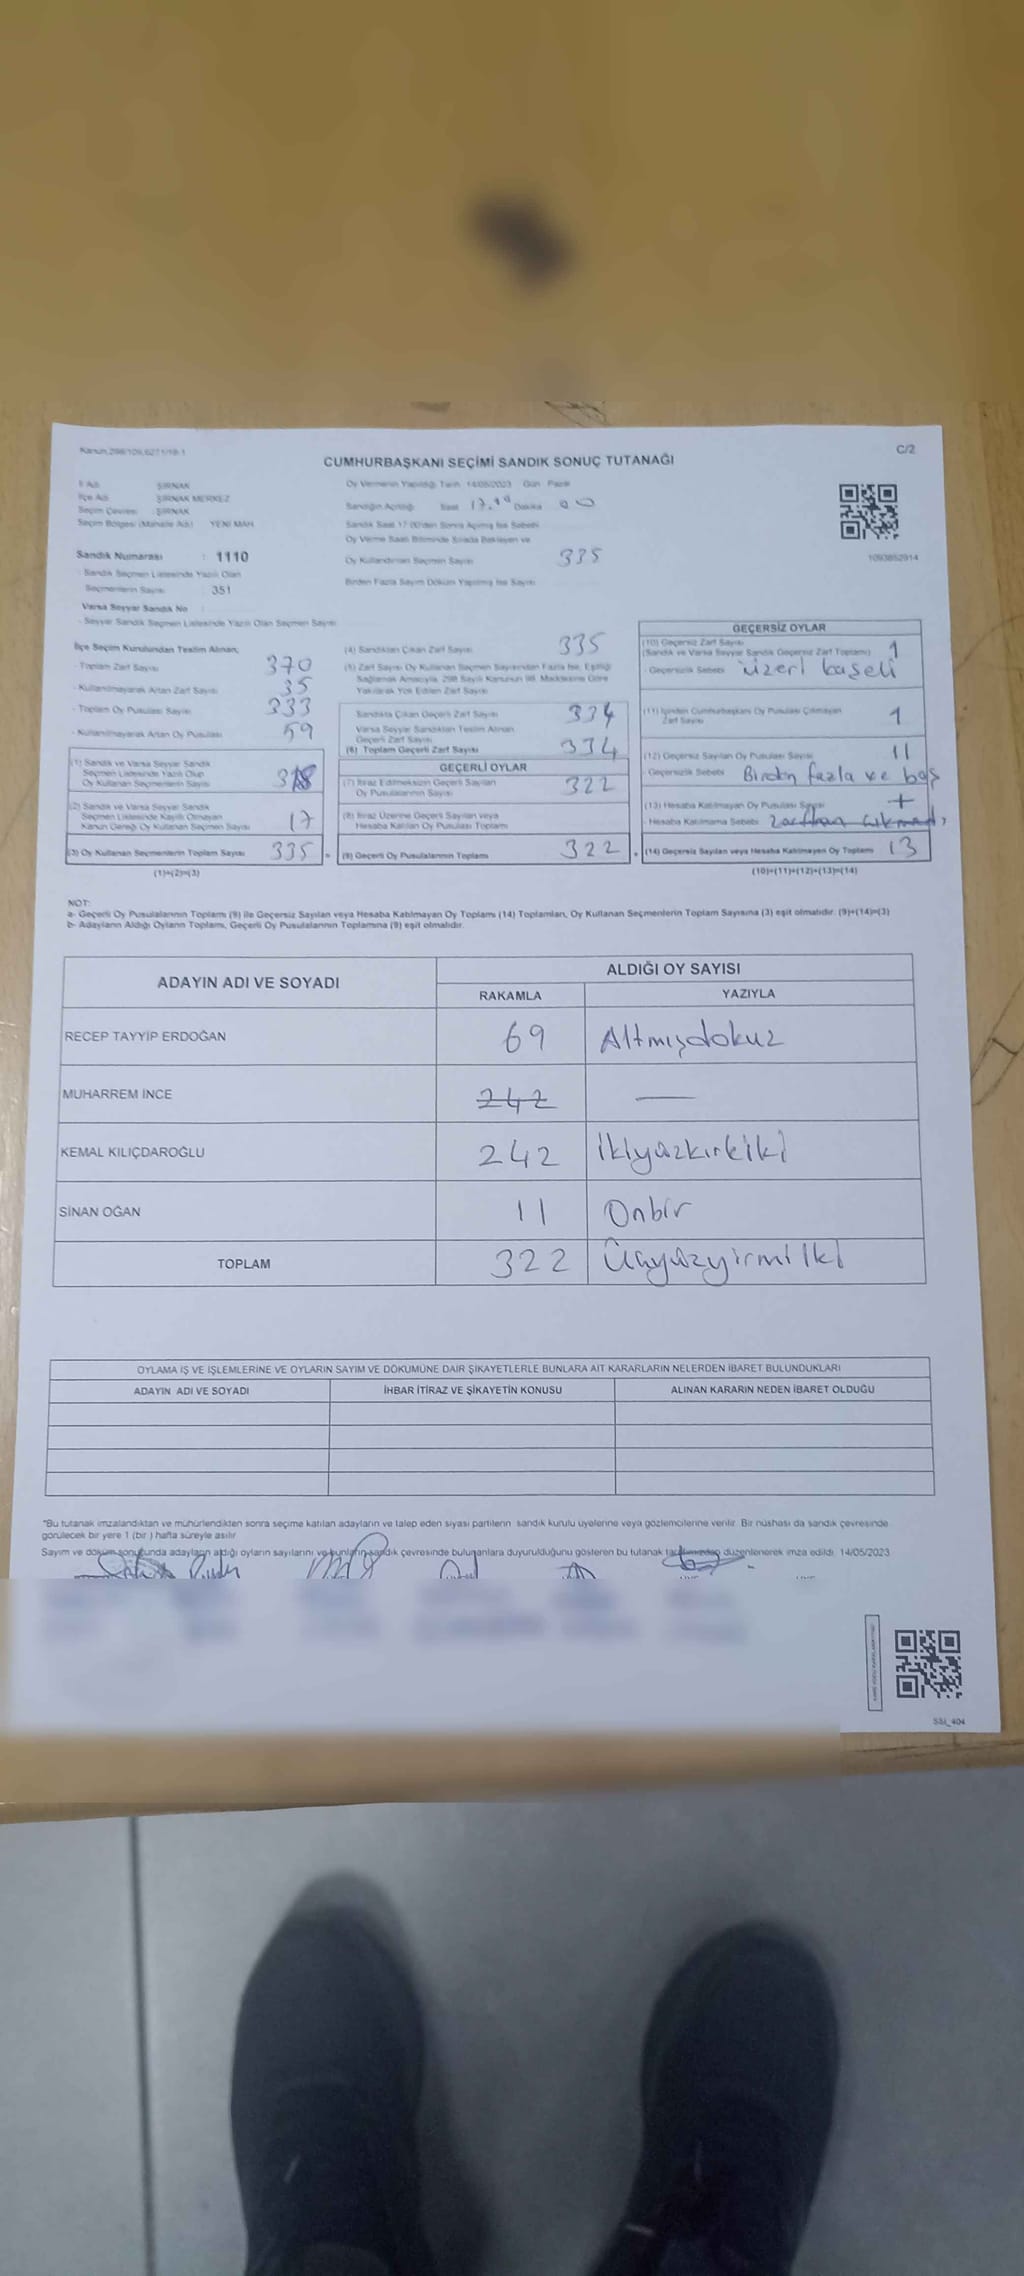 Kanun,298/109,6271/19-1
C/2
CUMHURBAŞKANI SEÇİMİ SANDIK SONUÇ TUTANAĞI
İl Adı : ŞIRNAK
İlçe Adı : ŞIRNAK MERKEZ
Seçim Çevresi : ŞIRNAK
Seçim Bölgesi (Mahalle Adı) : YENİ MAH
Sandık Numarası : 1110
- Sandık Seçmen Listesinde Yazılı Olan
Seçmenlerin Sayısı : 351
Varsa Seyyar Sandık No
- Seyyar Sandık Seçmen Listesinde Yazılı Olan Seçmen Sayısı
Oy Vermenin Yapıldığı Tarih 14/05/2023 Gün Pazar
Sandığın Açıldığı Saat 17.00 Dakika 00
Sandık Saat 17.00'den Sonra Açılmış İse Sebebi
Oy Verme Saati Bitiminde Sırada Bekleyen ve
Oy Kullandırılan Seçmen Sayısı 335
Birden Fazla Sayım Döküm Yapılmış İse Sayısı
1093852914
İlçe Seçim Kurulundan Teslim Alınan,
- Toplam Zarf Sayısı 370
- Kullanılmayarak Artan Zarf Sayısı 35
- Toplam Oy Pusulası Sayısı 333
- Kullanılmayarak Artan Oy Pusulası 59
(1) Sandık ve Varsa Seyyar Sandık
Seçmen Listesinde Yazılı Olup
Oy Kullanan Seçmenlerin Sayısı 318
(2) Sandık ve Varsa Seyyar Sandık
Seçmen Listesinde Kayıtlı Olmayan
Kanun Gereği Oy Kullanan Seçmen Sayısı 17
(3) Oy Kullanan Seçmenlerin Toplam Sayısı 335
(1)+(2)=(3)
(4) Sandıktan Çıkan Zarf Sayısı 335
(5) Zarf Sayısı Oy Kullanan Seçmen Sayısından Fazla İse, Eşitliği
Sağlamak Amacıyla, 298 Sayılı Kanunun 98. Maddesine Göre
Yakılarak Yok Edilen Zarf Sayısı
Sandıkta Çıkan Geçerli Zarf Sayısı 334
Varsa Seyyar Sandıktan Teslim Alınan
Geçerli Zarf Sayısı
(6) Toplam Geçerli Zarf Sayısı 334
GEÇERLİ OYLAR
(7) İtiraz Edilmeksizin Geçerli Sayılan
Oy Pusulalarının Sayısı 322
(8) İtiraz Üzerine Geçerli Sayılan veya
Hesaba Katılan Oy Pusulası Toplamı
= (9) Geçerli Oy Pusulalarının Toplamı 322
GEÇERSİZ OYLAR
(10) Geçersiz Zarf Sayısı
(Sandık ve Varsa Seyyar Sandık Geçersiz Zarf Toplamı) 1
- Geçersizlik Sebebi üzeri kaşeli
(11) İçinden Cumhurbaşkanı Oy Pusulası Çıkmayan
Zarf Sayısı 1
(12) Geçersiz Sayılan Oy Pusulası Sayısı 11
- Geçersizlik Sebebi Birden fazla ve boş
(13) Hesaba Katılmayan Oy Pusulası Sayısı +
- Hesaba Katılmama Sebebi zarftan çıkmadı
+ (14) Geçersiz Sayılan veya Hesaba Katılmayan Oy Toplamı 13
(10)+(11)+(12)+(13)=(14)
NOT:
a- Geçerli Oy Pusulalarının Toplamı (9) ile Geçersiz Sayılan veya Hesaba Katılmayan Oy Toplamı (14) Toplamları, Oy Kullanan Seçmenlerin Toplam Sayısına (3) eşit olmalıdır. (9)+(14)=(3)
b- Adayların Aldığı Oyların Toplamı, Geçerli Oy Pusulalarının Toplamına (9) eşit olmalıdır.
ADAYIN ADI VE SOYADI
ALDIĞI OY SAYISI
RAKAMLA YAZIYLA
RECEP TAYYİP ERDOĞAN 69 Altmışdokuz
MUHARREM İNCE 242 —
KEMAL KILIÇDAROĞLU 242 İkiyüzkırkiki
SİNAN OĞAN 11 Onbir
TOPLAM 322 Üçyüzyirmiiki
OYLAMA İŞ VE İŞLEMLERİNE VE OYLARIN SAYIM VE DÖKÜMÜNE DAİR ŞİKAYETLERLE BUNLARA AİT KARARLARIN NELERDEN İBARET BULUNDUKLARI
ADAYIN ADI VE SOYADI İHBAR İTİRAZ VE ŞİKAYETİN KONUSU ALINAN KARARIN NEDEN İBARET OLDUĞU
"Bu tutanak imzalandıktan ve mühürlendikten sonra seçime katılan adayların ve talep eden siyasi partilerin sandık kurulu üyelerine veya gözlemcilerine verilir. Bir nüshası da sandık çevresinde
görülecek bir yere 1 (bir ) hafta süreyle asılır.
Sayım ve döküm sonucunda adayların aldığı oyların sayılarını ve bunların sandık çevresinde bulunanlara duyurulduğunu gösteren bu tutanak tarafımızdan düzenlenerek imza edildi. 14/05/2023
SSI_404